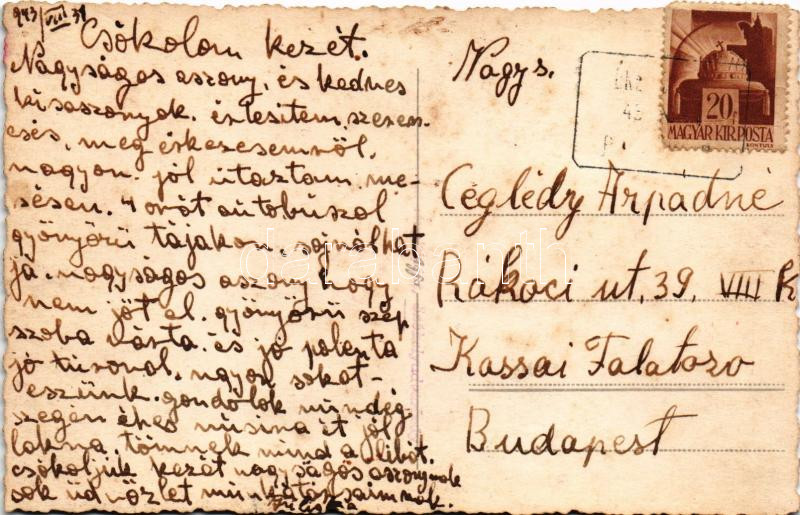 943/VIII 31
Csókolom kezét.
Nagyságos aszony, és kedves
kisaszonyok. értesitem, szeren-
csés, meg érkezésemről,
nagyon jól útaztam, me-
sésen. 4 orát autobúszal
gyönyörű tájakon. sajnálhat
ja. nagyságos aszony hogy
nem jöt el. gyönyörű szép
szoba várta. és jó polenta
jó túroval. nagyon sokat
eszünk. gondolok mindég
szegén éhes musina it jól
lakna tömnék mind a libát.
csókoljuk kezét nagyságos aszonynak
sok üdvözlet munkatársaimnak.
Nagys.
Céglédy Árpádné
Rákoci ut, 39, VIII K
Kassai Falatozo
Budapest
20f
MAGYAR KIR. POSTA
darabanth